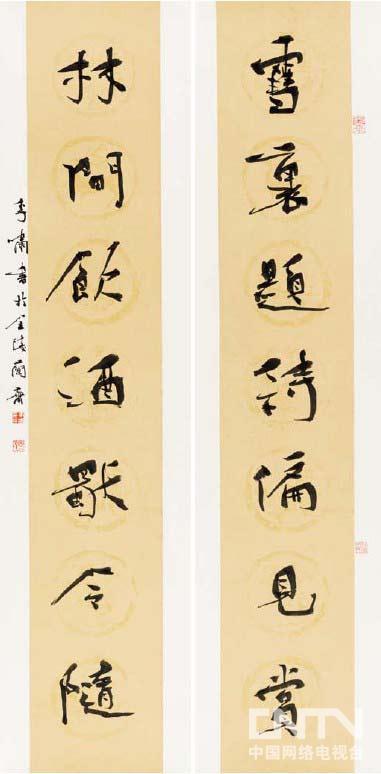 雪裏題詩偏見賞
林間飲酒獨令隨
李嘯書於金陵齋
CNTV
中国网络电视台